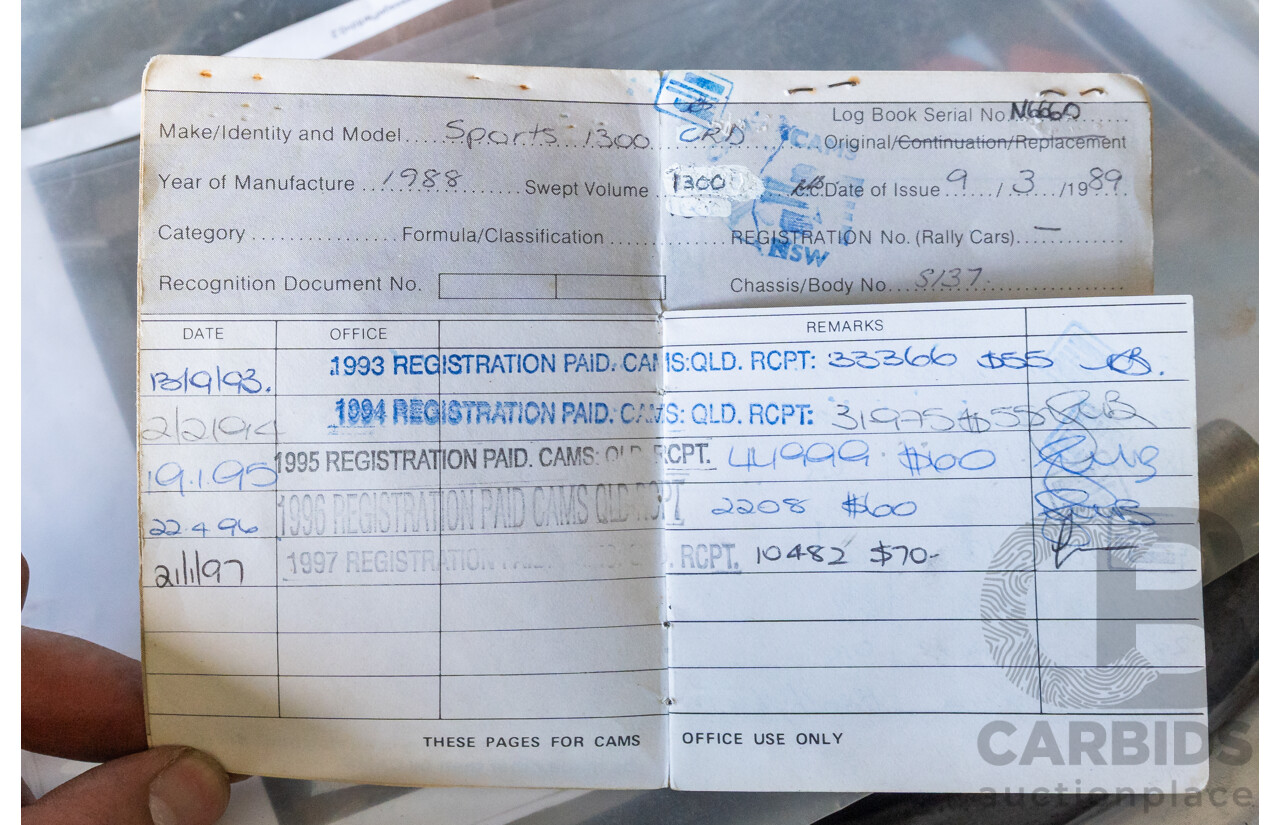 Log Book Serial No. N666D
Make/Identity and Model Sports 1300 CRD
CAMS
Original/Continuation/Replacement
Year of Manufacture 1988 Swept Volume 1300 c.c. Date of Issue 9/3/1989
Category Formula/Classification REGISTRATION No. (Rally Cars) —
NSW
Recognition Document No. Chassis/Body No. S137
DATE OFFICE REMARKS
13/9/93. 1993 REGISTRATION PAID. CAMS: QLD. RCPT: 33366 $55
2/2/94 1994 REGISTRATION PAID. CAMS: QLD. RCPT: 31975 $55
19.1.95 1995 REGISTRATION PAID. CAMS: QLD. RCPT. 44999. $60
22.4.96 1996 REGISTRATION PAID CAMS QLD RCPT 2208 $60
2/1/97 1997 REGISTRATION PAID. RCPT. 10482 $70-
THESE PAGES FOR CAMS OFFICE USE ONLY
CARBIDS
auctionplace